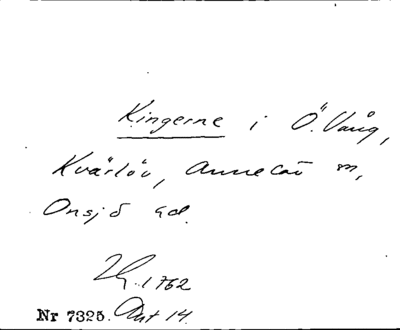 Kingerne i Ö. Vång,
Kvärlöv, Annelöv m,
Onsjö hd.
1762
Nr 7325. Akt 14.